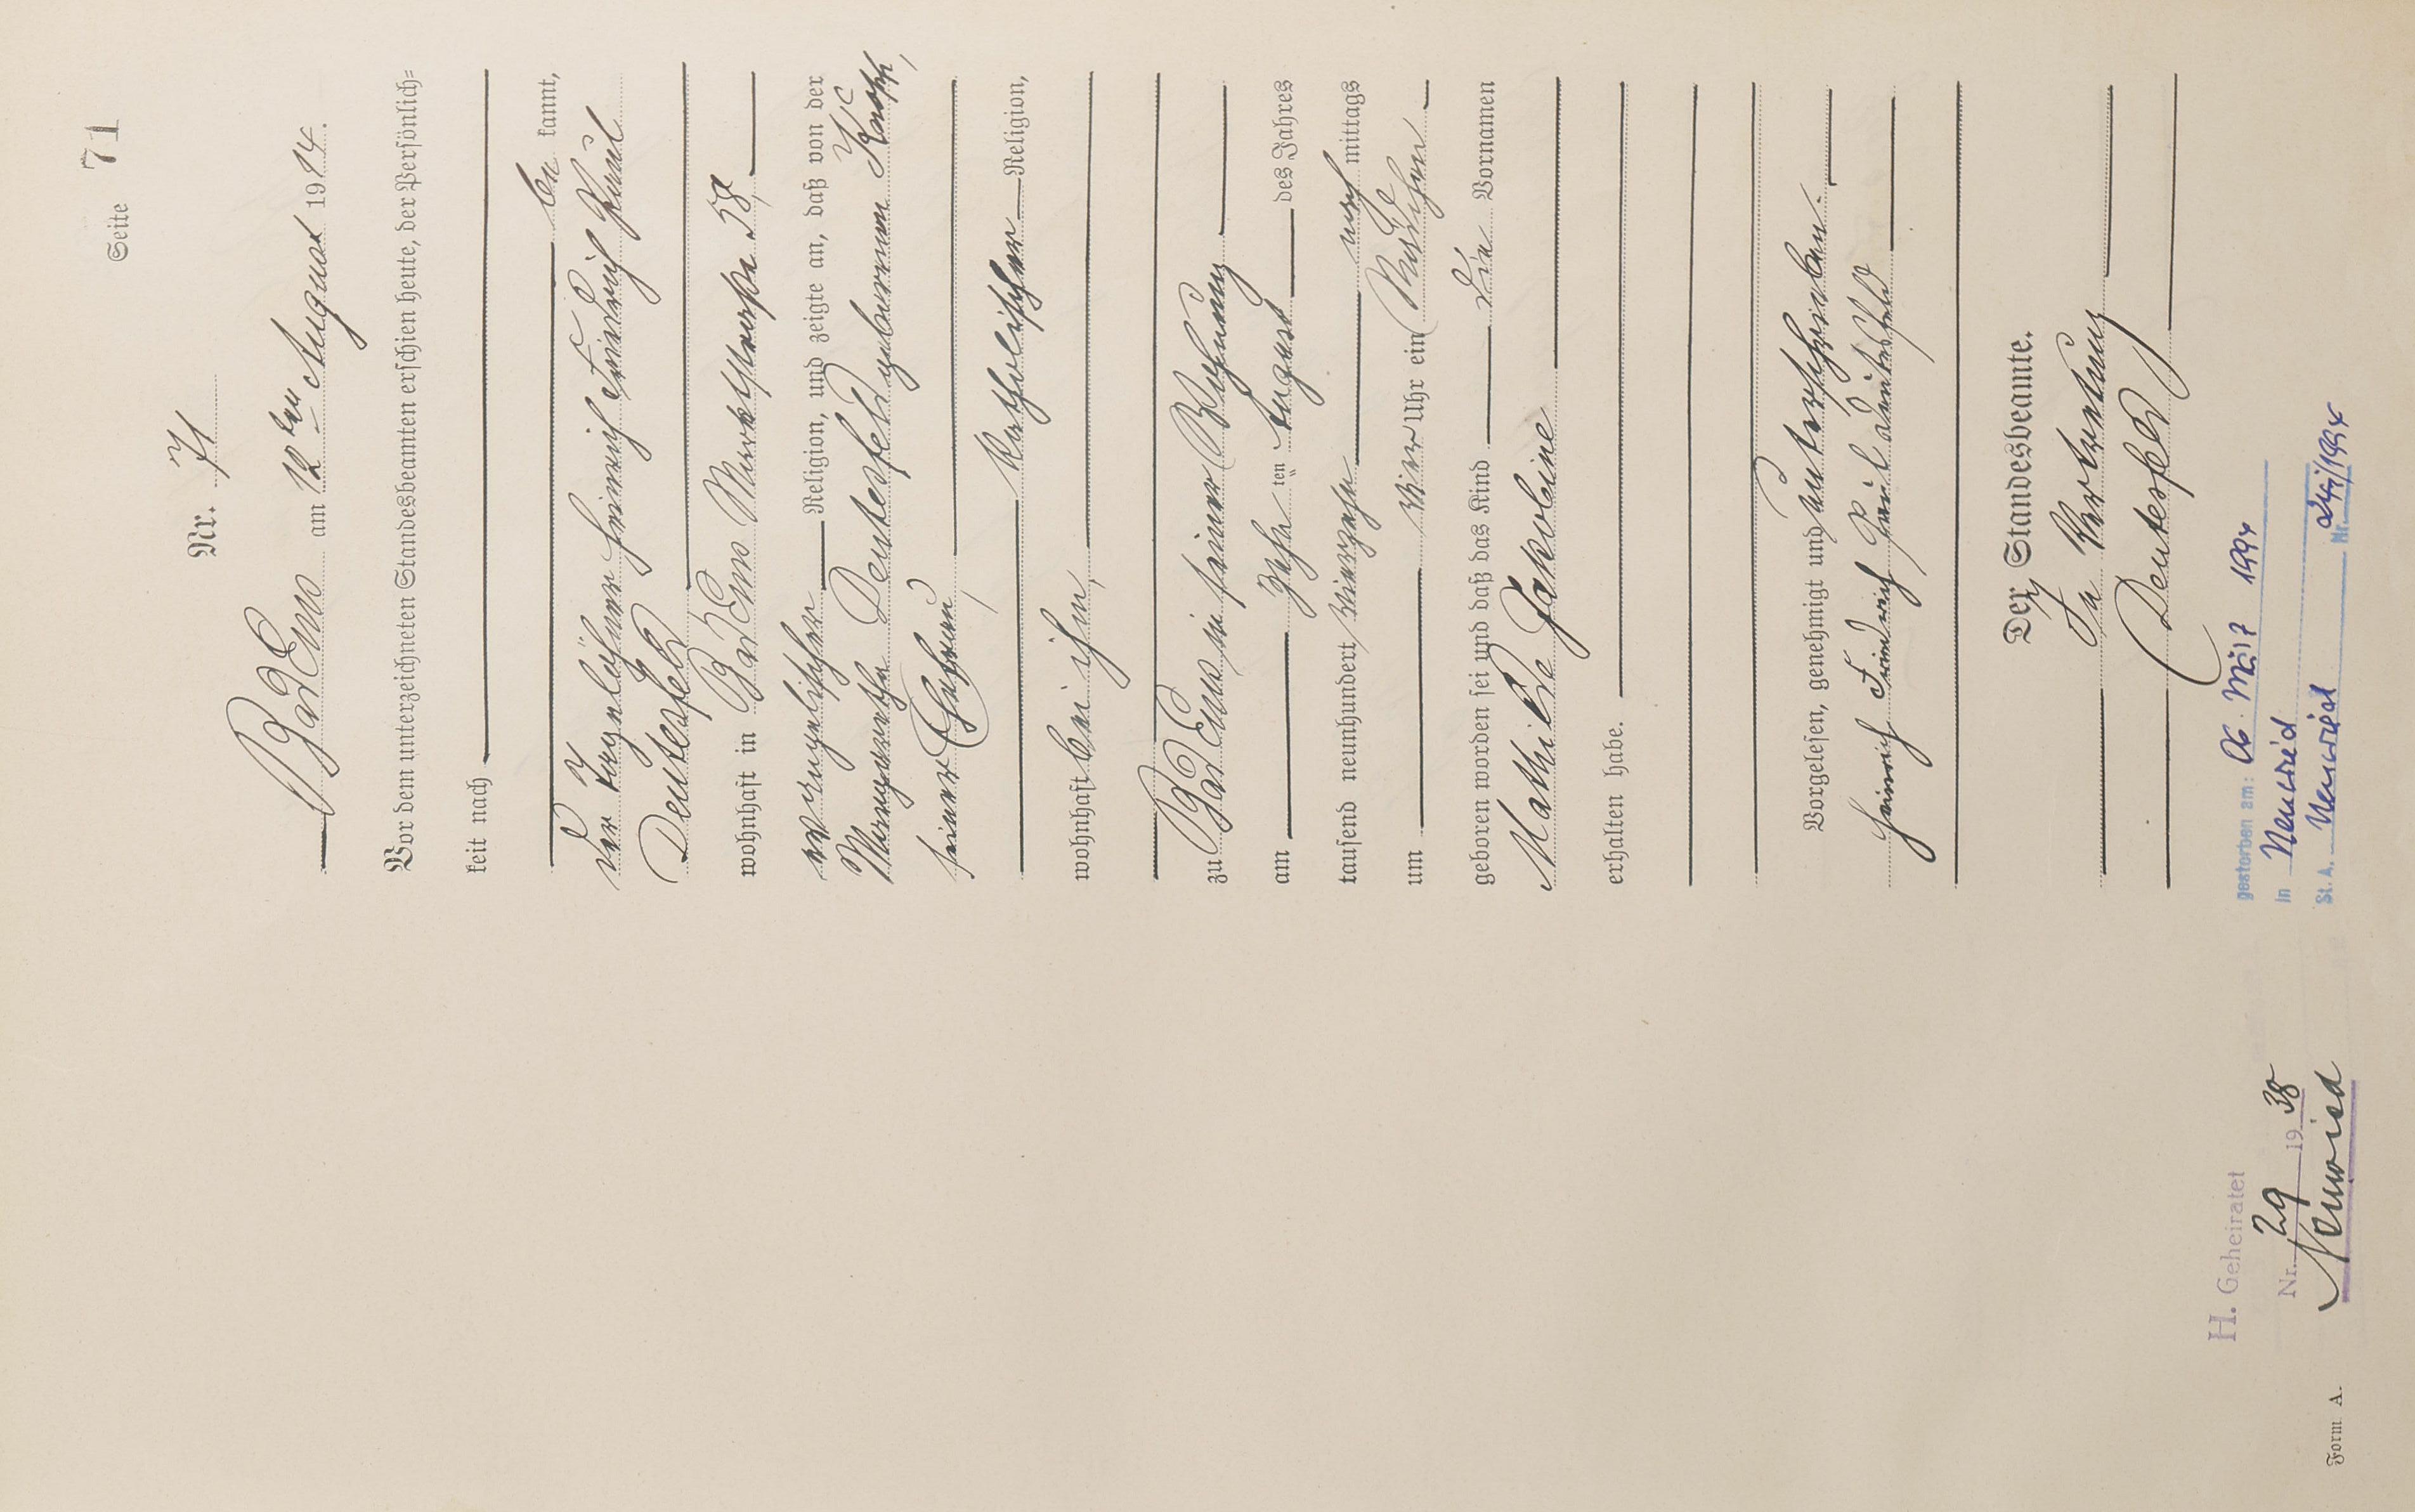 Seite 71
Nr. 71
Bad Ems am 12ten August 1914.
Vor dem unterzeichneten Standesbeamten erschien heute, der Persönlich=
keit nach
be kannt,
der Tagelöhner Heinrich Friedrich Paul
Deutesfeld
wohnhaft in Bad Ems Marktstraße 58,
evangelischer Religion, und zeigte an, daß von der
Margarethe Deutesfeld geborenen
seiner Ehefrau,
katholischer Religion,
wohnhaft bei ihm,
zu Bad Ems in seiner Wohnung
am zehnten August des Jahres
tausend neunhundert vierzehn nach mittags
um vier Uhr ein Mädchen
geboren worden sei und daß das Kind die Vornamen
Mathilde Jakobine
erhalten habe.
Vorgelesen, genehmigt und unterschrieben.
Heinrich Friedrich Paul Deutesfeld
Der Standesbeamte.
In Vertretung
Deutesfeld
H. Geheiratet
Nr. 29 1938
Neuwied
gestorben am: 06. März 1994
in Neuwied
St. A. Neuwied Nr. 241/1994
Form A.